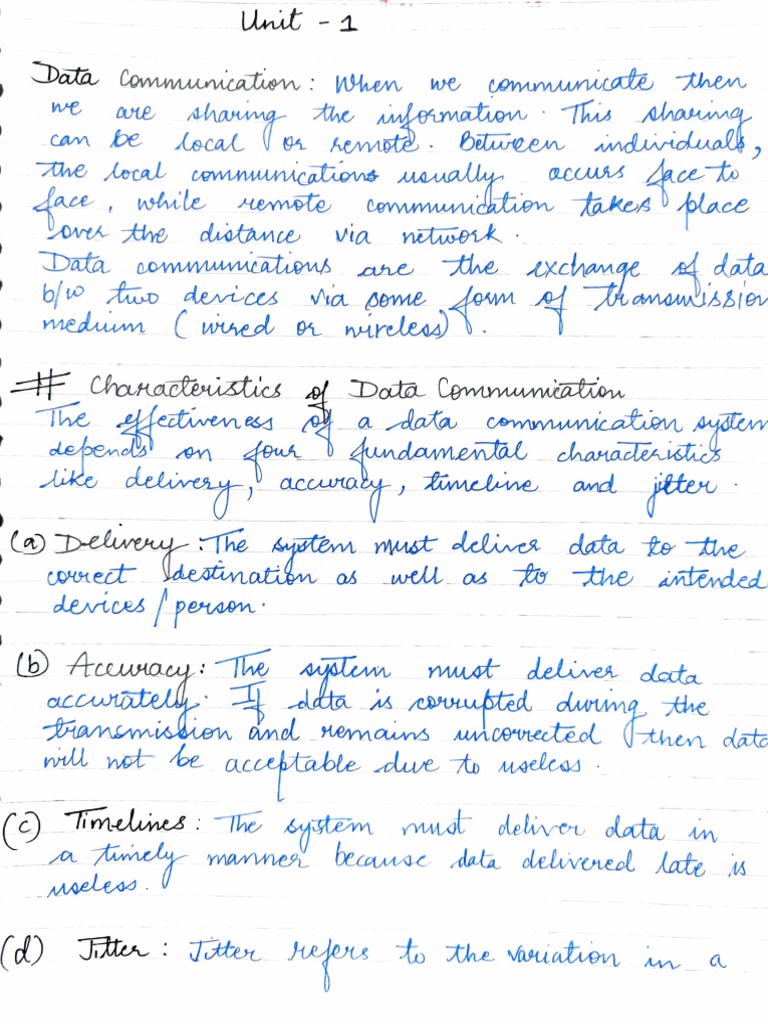 Unit - 1
Data Communication: When we communicate then
we are sharing the information. This sharing
can be local or remote. Between individuals,
the local communications usually occurs face to
face, while remote communication takes place
over the distance via network.
Data communications are the exchange of data
b/w two devices via some form of transmission
medium (wired or wireless).
# Characteristics of Data Communication
The effectiveness of a data communication system
depends on four fundamental characteristics
like delivery, accuracy, timeline and jitter.
(a) Delivery: The system must deliver data to the
correct destination as well as to the intended
devices/person.
(b) Accuracy: The system must deliver data
accurately. If data is corrupted during the
transmission and remains uncorrected then data
will not be acceptable due to useless.
(c) Timelines: The system must deliver data in
a timely manner because data delivered late is
useless.
(d) Jitter: Jitter refers to the variation in a